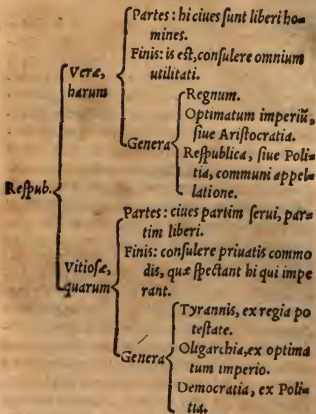 Partes: hi ciues ſunt liberi ho-
mines.
Veræ,
harum
Finis: is eſt, conſulere omnium
utilitati.
Regnum.
Optimatum imperiũ,
ſiue Ariſtocratia.
Genera
Reſpublica, ſiue Poli-
tia, communi appel-
latione.
Reſpub.
Partes: ciues partim ſerui, par-
tim liberi.
Finis: conſulere priuatis commo
dis, quæ ſpectant hi qui impe
rant.
Vitioſæ,
quarum
Tyrannis, ex regia po
teſtate.
Oligarchia, ex optima
tum imperio.
Genera
Democratia, ex Poli-
tia.